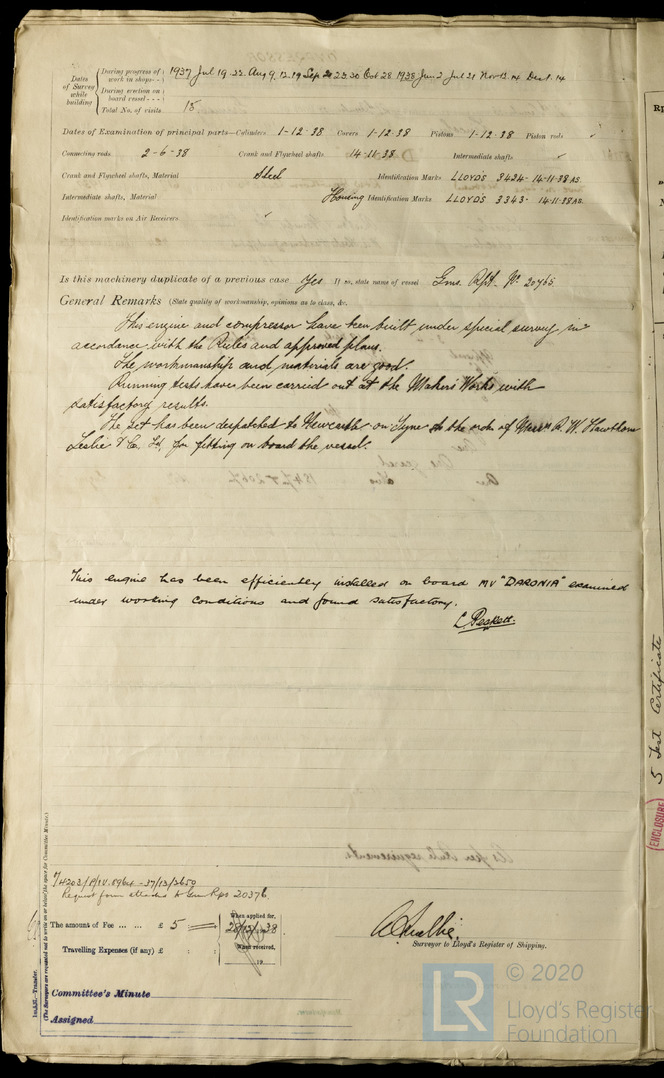 Dates of Survey while building
During progress of work in shops - - 1937 Jul 19. 22. Aug 9. 12. 19 Sep 23. 30 Oct 28 1938 Jun 2 Jul 21 Nov 3. 14 Dec 1. 14
During erection on board vessel - - -
Total No. of visits 15
Dates of Examination of principal parts—Cylinders 1-12-38 Covers 1-12-38 Pistons 1-12-38 Piston rods ✓
Connecting rods 2-6-38 Crank and Flywheel shafts 14-11-38 Intermediate shafts ✓
Crank and Flywheel shafts, Material Steel Identification Marks LLOYDS 3424-14-11-38 AB.
Intermediate shafts, Material Housing Identification Marks LLOYDS 3343- 14-11-38 AB.
Identification marks on Air Receivers ✓
Is this machinery duplicate of a previous case Yes If so, state name of vessel Gms. Rpt. No. 20765
General Remarks (State quality of workmanship, opinions as to class, &c.
This engine and compressor have been built under special survey in
accordance with the Rules and approved plans.
The workmanship and materials are good.
Running tests have been carried out at the Makers Works with
satisfactory results.
The set has been despatched to Newcastle on Tyne to the order of Messrs R. W. Hawthorn
Leslie & Co. Ld. for fitting on board the vessel.
This engine has been efficiently installed on board MV "DARONIA" examined
under working conditions and found satisfactory.
L. Peskett.
Request form attached to Gms Rps 20376.
The amount of Fee ... ... £ 5 : :
When applied for, 28/12/1938
Travelling Expenses (if any) £ : :
When received, 19
Surveyor to Lloyd's Register of Shipping.
Committee's Minute
Assigned
(The Surveyors are requested not to write on or below the space for Committee Minute.)
5 Test Certificate
ENCLOSURE
LR
© 2020
Lloyd's Register
Foundation